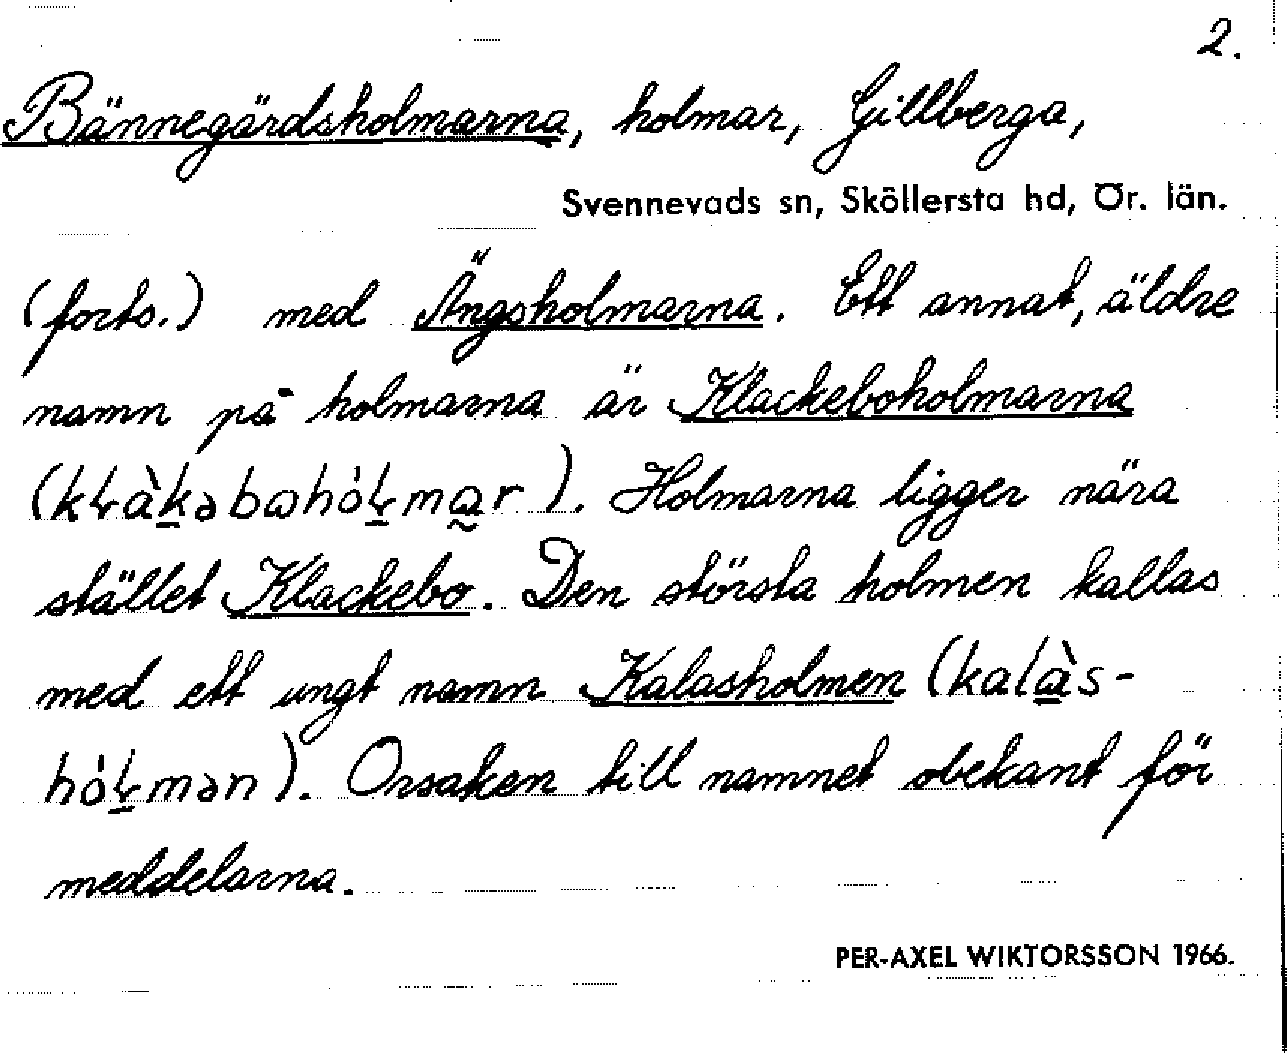 2.
Bännegärdsholmarna, holmar, Gillberga,
Svennevads sn, Sköllersta hd, Ör. län.
(forts.) med Ängsholmarna. Ett annat, äldre
namn på holmarna är Klackeboholmarna
(kɫàk̲əbωhóɫ̲ma̰r). Holmarna ligger nära
stället Klackebo. Den största holmen kallas
med ett ungt namn Kalasholmen (kalà̲s-
hóɫ̲mən). Orsaken till namnet obekant för
meddelarna.
PER-AXEL WIKTORSSON 1966.